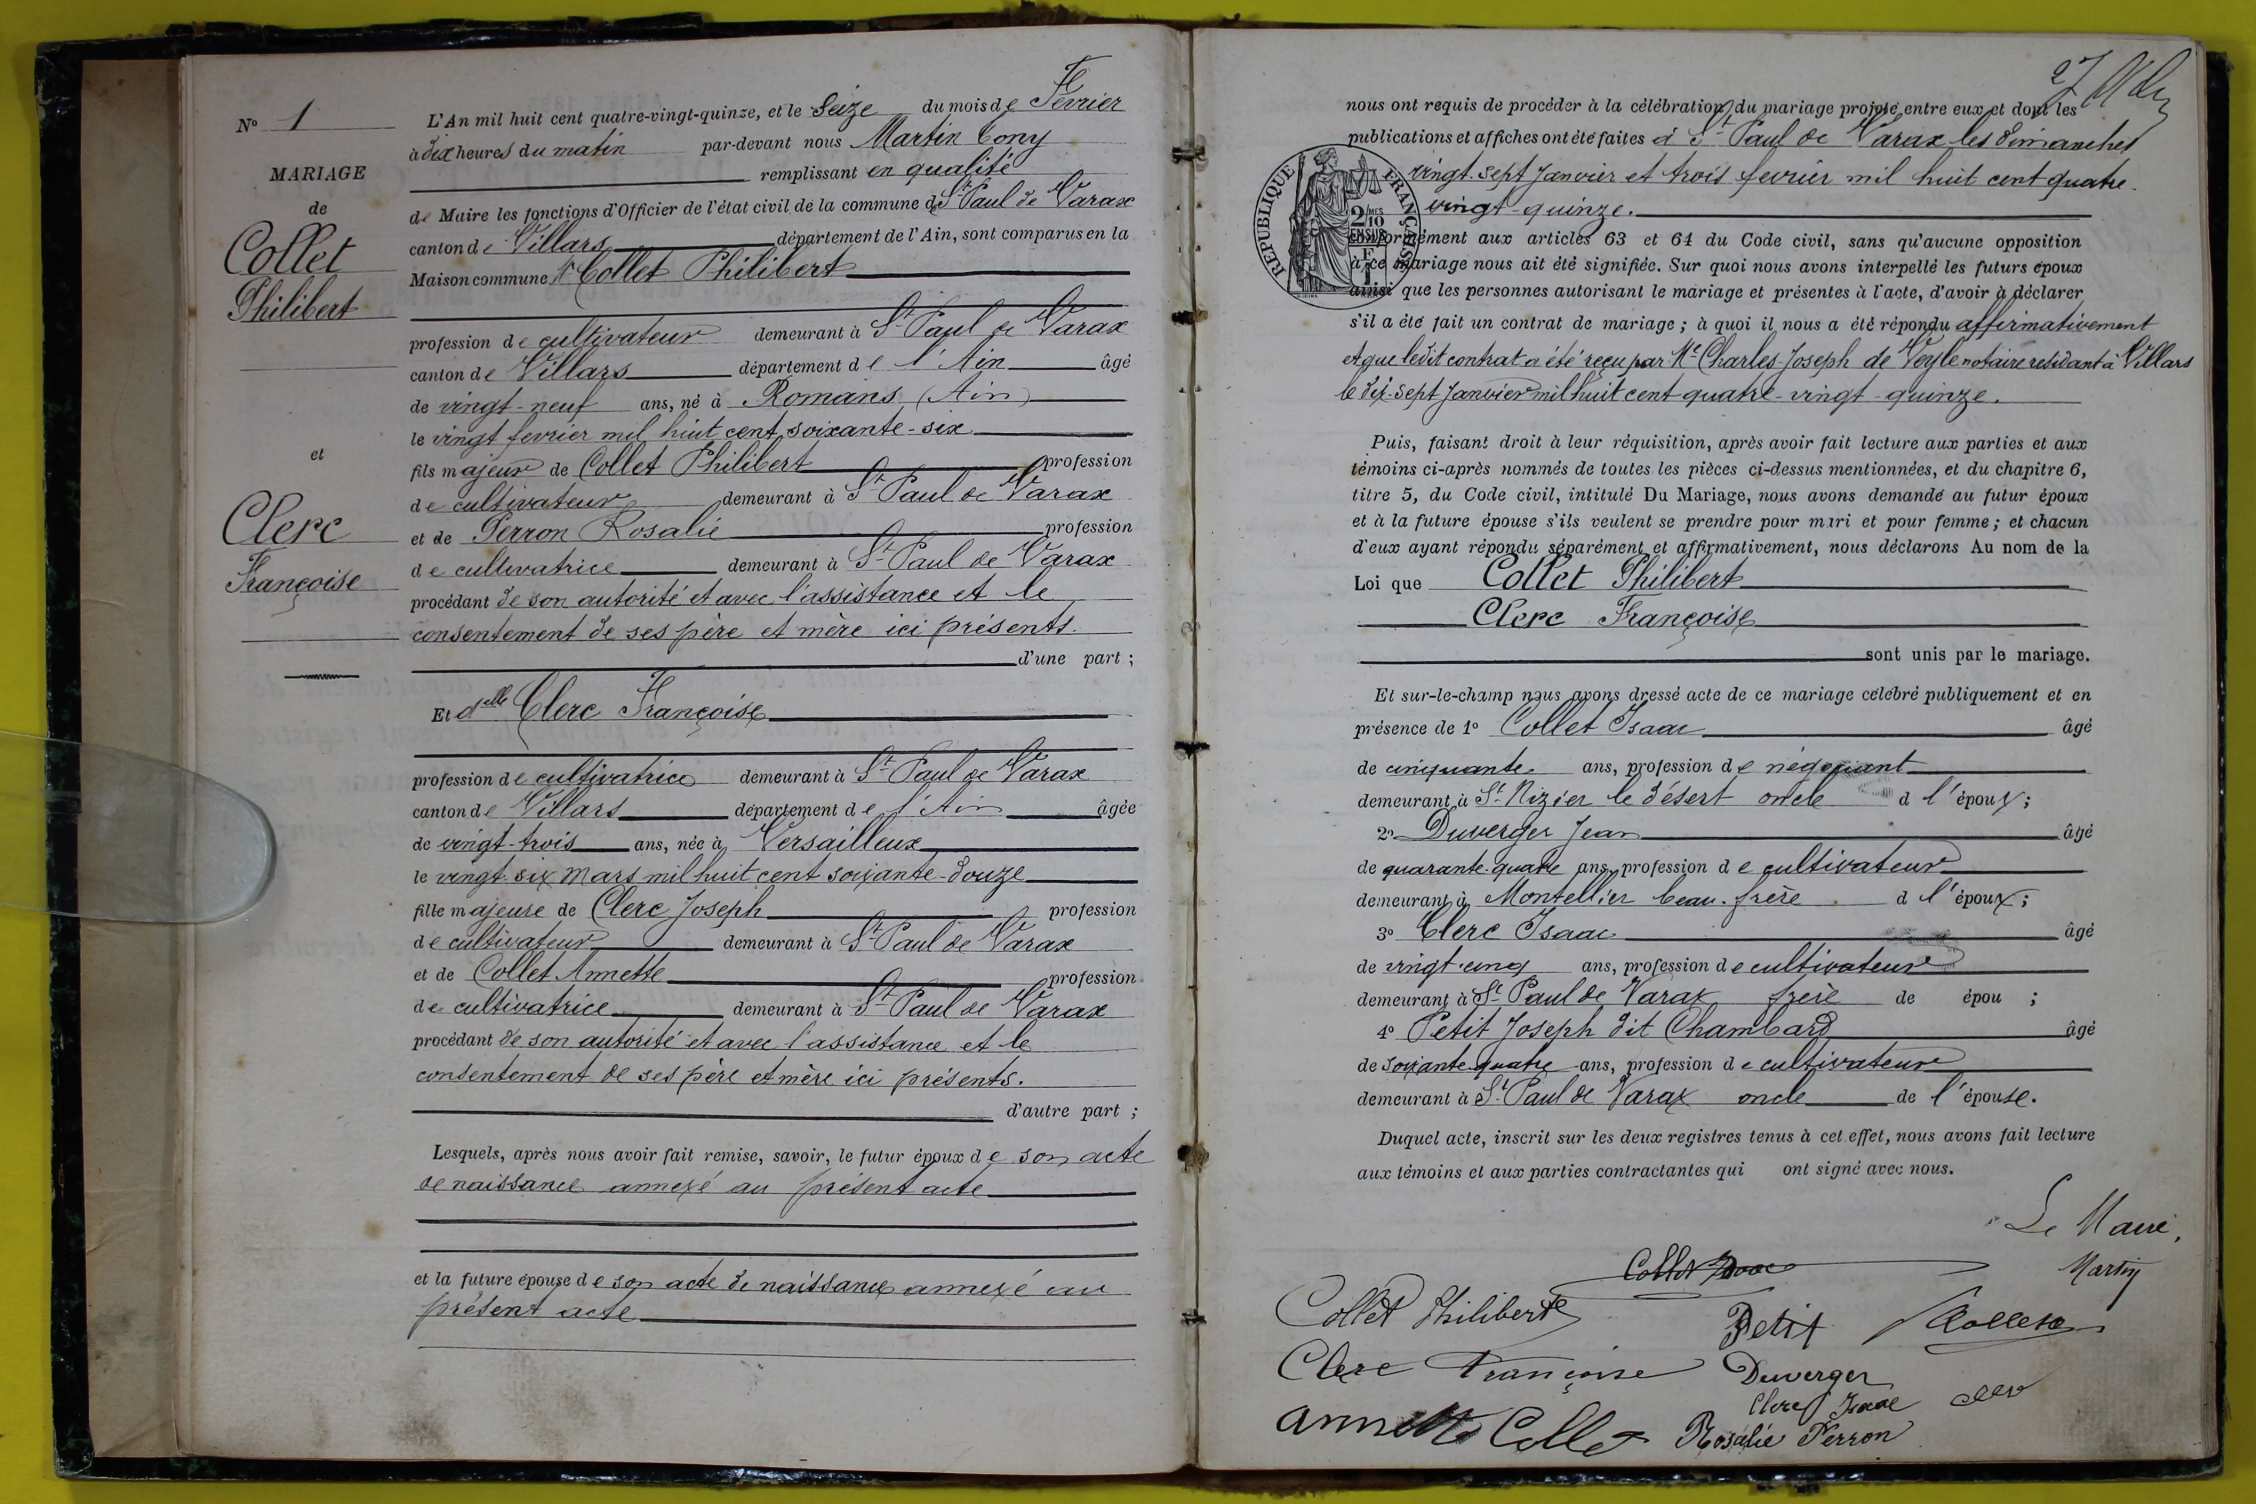 N° 1
MARIAGE
de
Collet
Philibert
et
Clerc
Françoise
L'An mil huit cent quatre-vingt-quinze, et le Seize du mois de Fevrier
à dix heures du matin par-devant nous Martin Tony
remplissant en qualité
de Maire les fonctions d'Officier de l'état civil de la commune de St Paul de Varax
canton de Villars département de l'Ain, sont comparus en la
Maison commune Sr Collet Philibert
profession de cultivateur demeurant à St Paul de Varax
canton de Villars département de l'Ain âgé
de vingt-neuf ans, né à Romans (Ain)
le vingt fevrier mil huit cent soixante-six
fils majeur de Collet Philibert profession
de cultivateur demeurant à St Paul de Varax
et de Perron Rosalie profession
de cultivatrice demeurant à St Paul de Varax
procédant de son autorité et avec l'assistance et le
consentement de ses père et mère ici présents.
d'une part ;
Et delle Clerc Françoise
profession de cultivatrice demeurant à St Paul de Varax
canton de Villars département de l'Ain âgée
de vingt-trois ans, née à Versailleux
le vingt-six Mars mil huit cent soixante-douze
fille majeure de Clerc Joseph profession
de cultivateur demeurant à St Paul de Varax
et de Collet Annette profession
de cultivatrice demeurant à St Paul de Varax
procédant de son autorité et avec l'assistance et le
consentement de ses père et mère ici présents.
d'autre part ;
Lesquels, après nous avoir fait remise, savoir, le futur époux de son acte
de naissance annexé au présent acte
et la future épouse de son acte de naissance annexé au
présent acte
27
nous ont requis de procéder à la célébration du mariage projeté entre eux et dont les
publications et affiches ont été faites à St Paul de Varax les dimanches
vingt-sept Janvier et trois fevrier mil huit cent quatre-
vingt-quinze.
RÉPUBLIQUE FRANÇAISE
2/10
conformément aux articles 63 et 64 du Code civil, sans qu'aucune opposition
à ce mariage nous ait été signifiée. Sur quoi nous avons interpellé les futurs époux
ainsi que les personnes autorisant le mariage et présentes à l'acte, d'avoir à déclarer
s'il a été fait un contrat de mariage ; à quoi il nous a été répondu affirmativement
et que ledit contrat a été reçu par Me Charles-Joseph de Veyle notaire résidant à Villars
le dix-sept Janvier mil huit cent quatre-vingt-quinze.
Puis, faisant droit à leur réquisition, après avoir fait lecture aux parties et aux
témoins ci-après nommés de toutes les pièces ci-dessus mentionnées, et du chapitre 6,
titre 5, du Code civil, intitulé Du Mariage, nous avons demandé au futur époux
et à la future épouse s'ils veulent se prendre pour mari et pour femme ; et chacun
d'eux ayant répondu séparément et affirmativement, nous déclarons Au nom de la
Loi que Collet Philibert
Clerc Françoise
sont unis par le mariage.
Et sur-le-champ nous avons dressé acte de ce mariage célébré publiquement et en
présence de 1° Collet Isaac âgé
de cinquante ans, profession de négociant
demeurant à St Nizier le désert oncle d l'époux ;
2° Duverger Jean âgé
de quarante-quatre ans, profession de cultivateur
demeurant à Montellier beau-frère d l'époux ;
3° Clerc Isaac âgé
de vingt-cinq ans, profession de cultivateur
demeurant à St Paul de Varax frère de épou ;
4° Petit Joseph dit Chambard âgé
de soixante-quatre ans, profession de cultivateur
demeurant à St Paul de Varax oncle de l'épouse.
Duquel acte, inscrit sur les deux registres tenus à cet effet, nous avons fait lecture
aux témoins et aux parties contractantes qui ont signé avec nous.
Le Maire,
Martin
Collet Isaac
Collet Philibert
Petit
Clerc Françoise
Duverger
Clerc Isaac
Annette Collet
Rosalie Perron